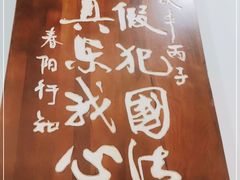 丙子
假犯國法
真我心
春阳行知